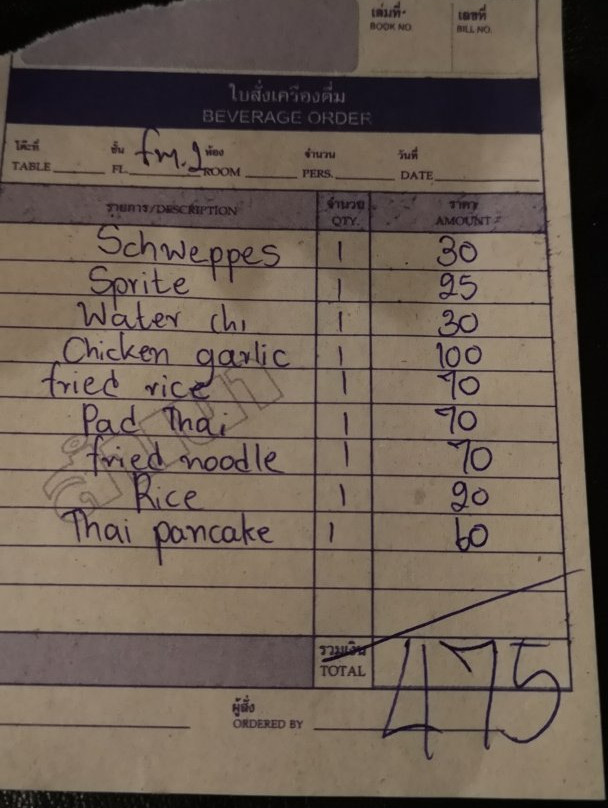 เล่มที่ เลขที่
BOOK NO. BILL NO.
ใบสั่งเครื่องดื่ม
BEVERAGE ORDER
โต๊ะที่ ชั้น fm.2 ห้อง จำนวน วันที่
TABLE FL. ROOM PERS. DATE
รายการ/DESCRIPTION จำนวน ราคา
QTY. AMOUNT
Schweppes 1 30
Sprite 1 25
Water chi 1 30
Chicken garlic 1 100
fried rice 1 70
Pad Thai 1 70
fried noodle 1 70
Rice 1 20
Thai pancake 1 60
สำเนา
รวมเงิน
TOTAL 475
ผู้สั่ง
ORDERED BY